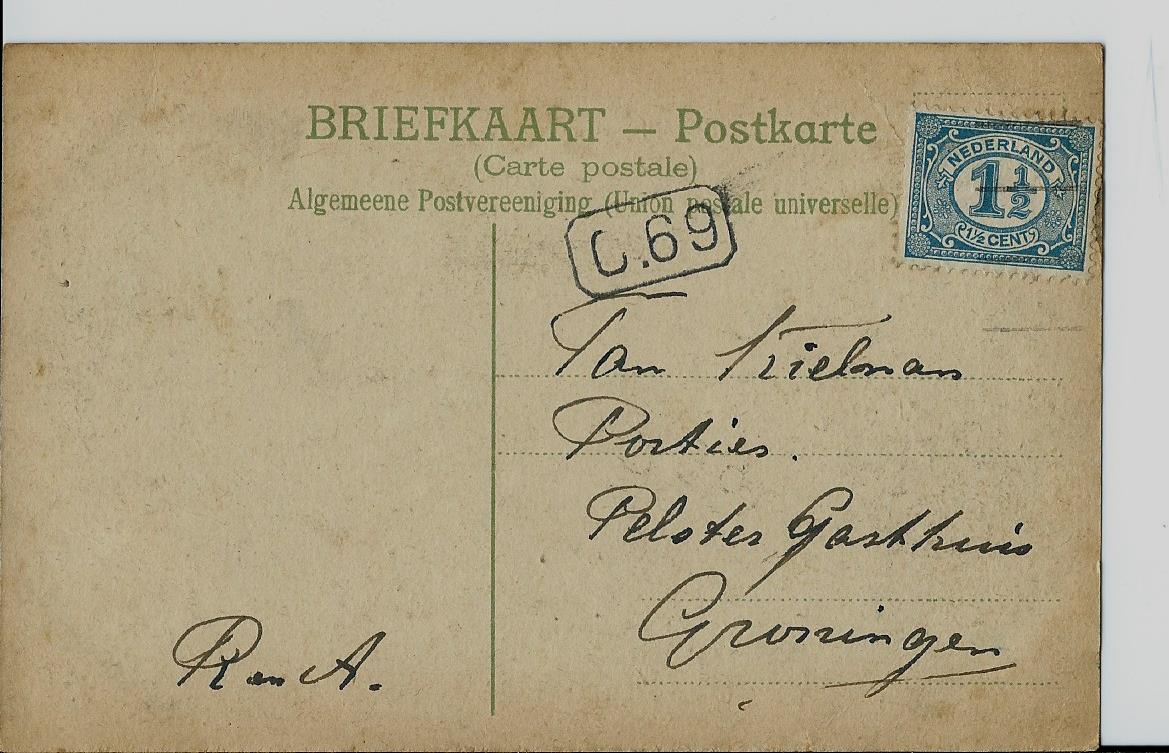 BRIEFKAART — Postkarte
(Carte postale)
Algemeene Postvereeniging (Union postale universelle)
NEDERLAND
1 1/2
1/2 CENT
C.69
Porties.
Pelster Gasthuis
Groningen
R en A.